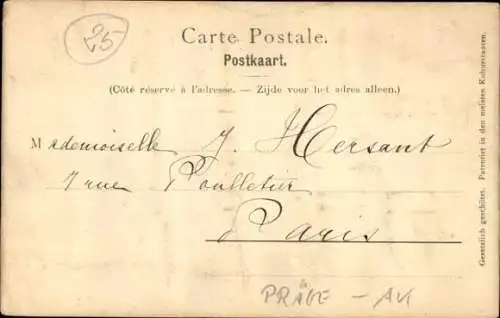 25
Carte Postale.
Postkaart.
(Côté réservé à l'adresse. — Zijde voor het adres alleen.)
Mademoiselle J. Hersant
7 rue Poulletier
Paris
PRÄGE - AK
Gesetzlich geschützt. Patentirt in den meisten Kulturstaaten.